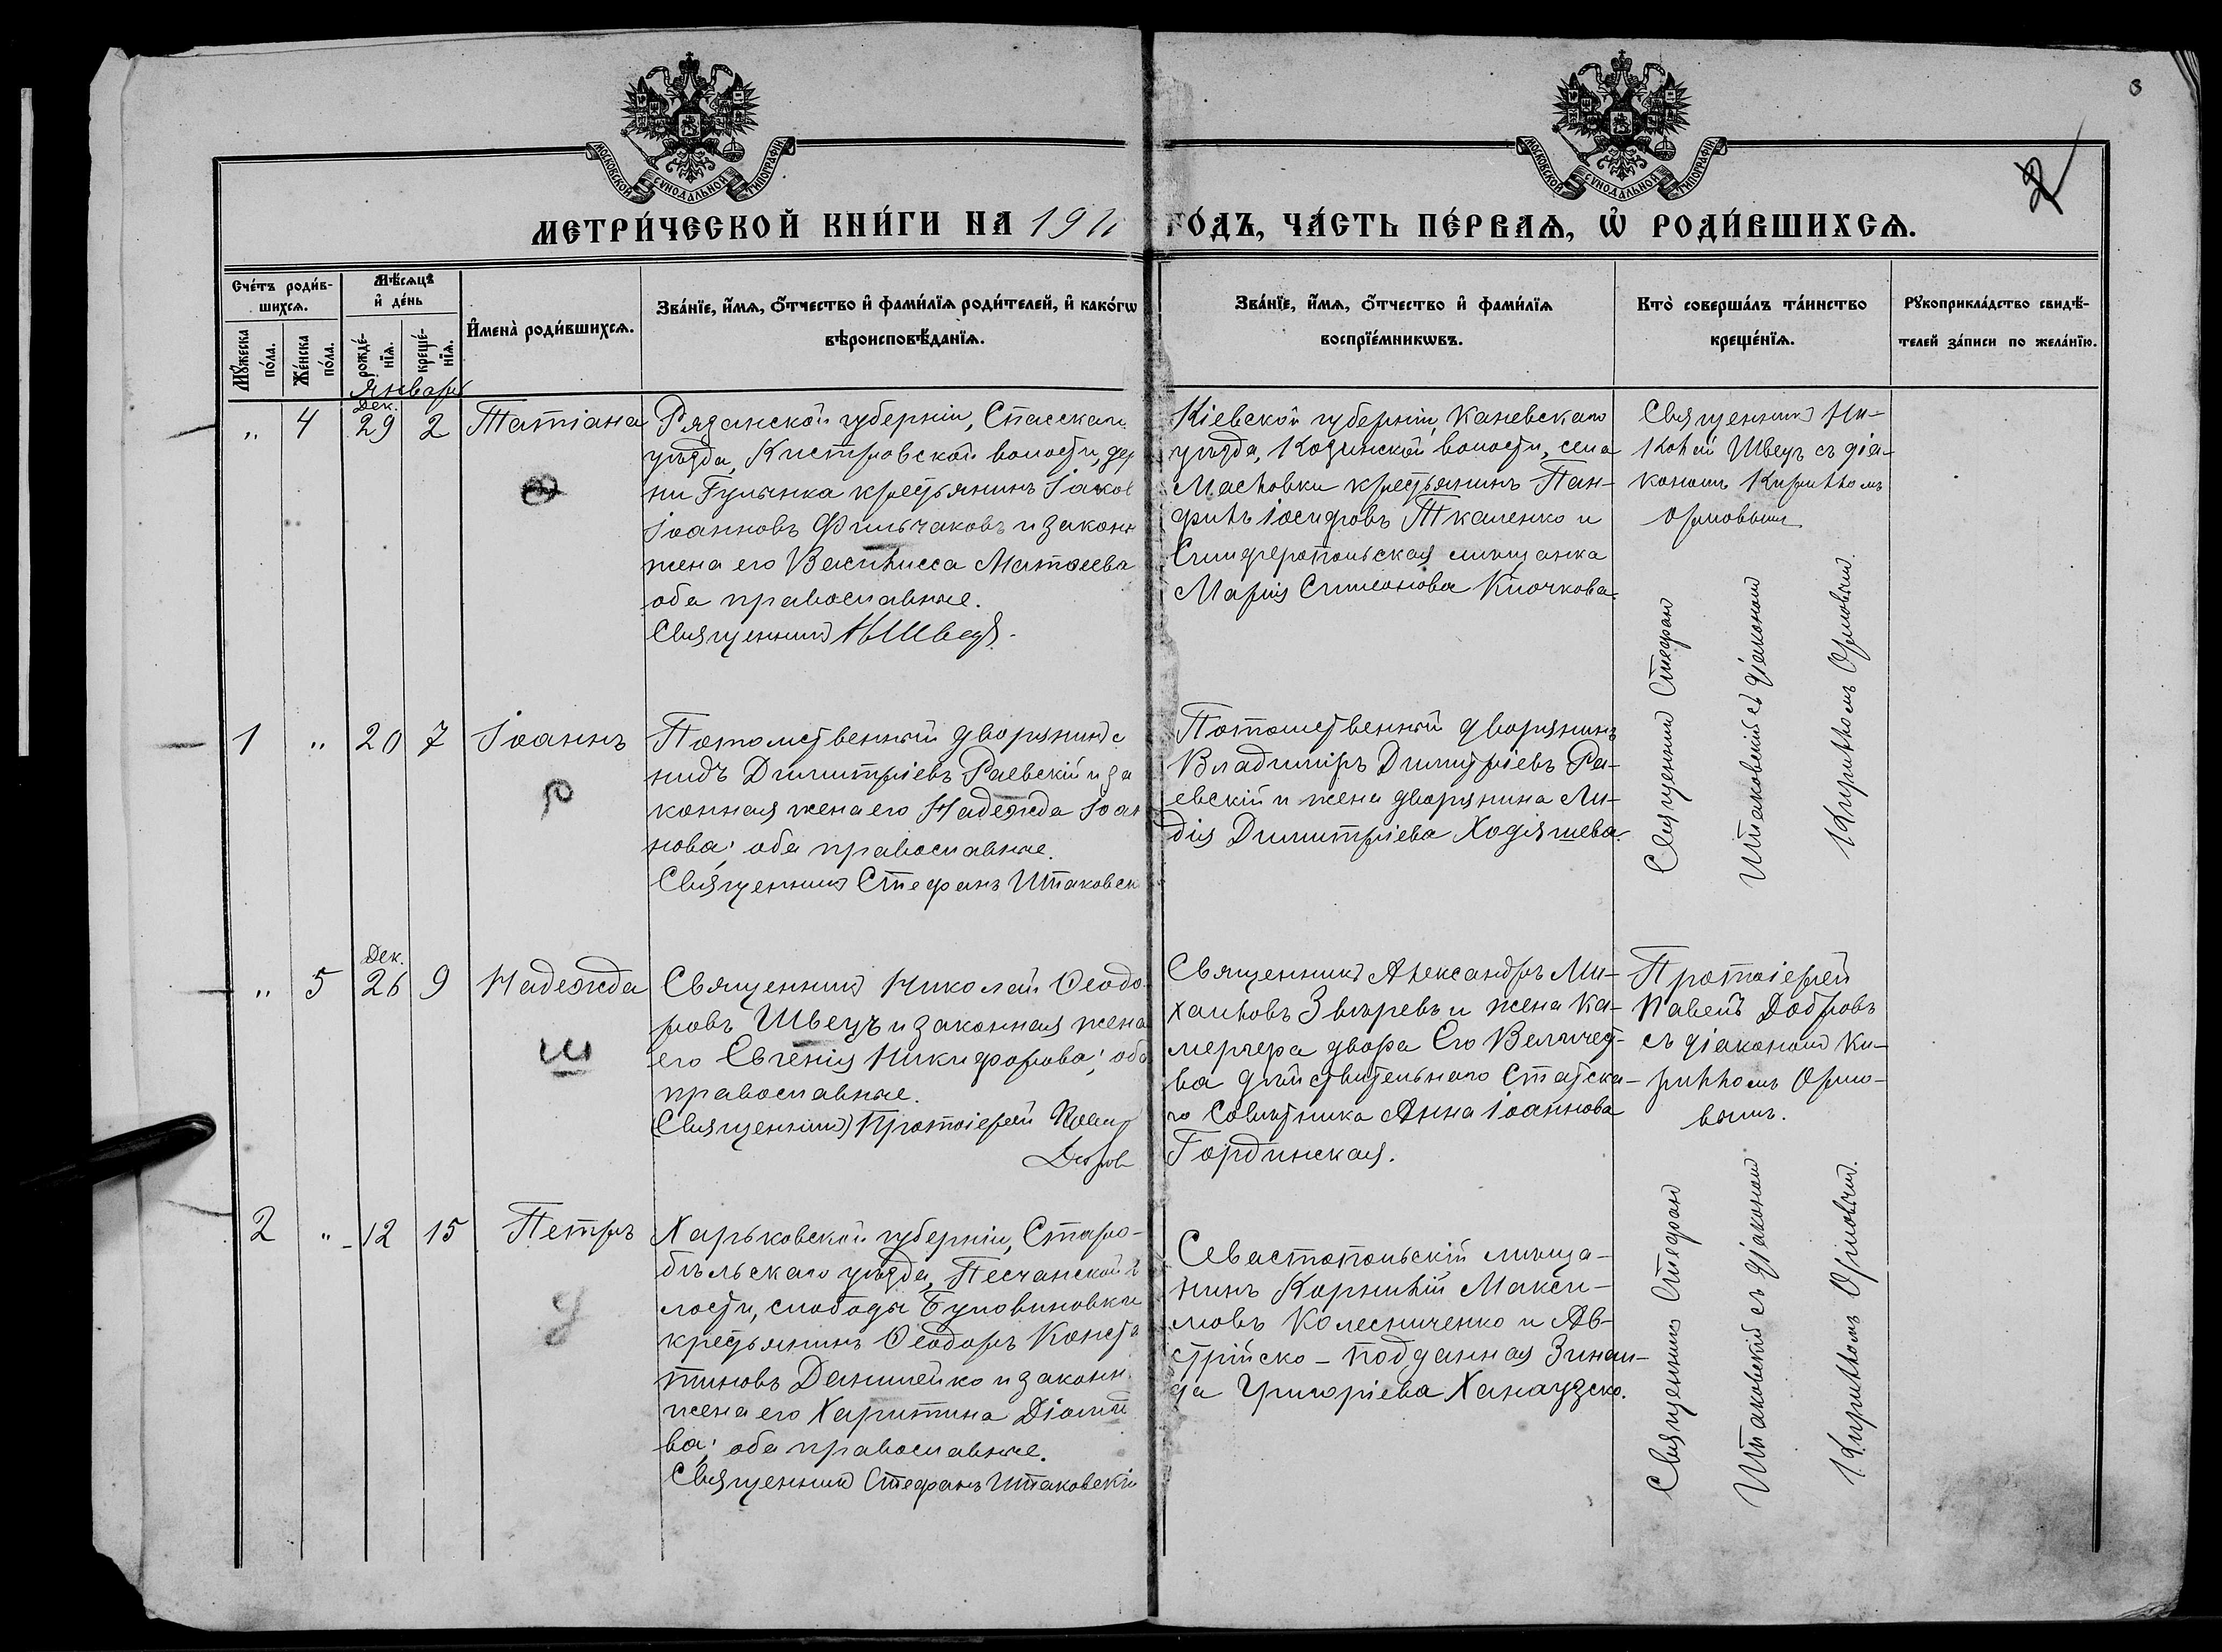 3
2
МОСКОВСКОЙ СѴНОДАЛЬНОЙ ТИПОГРАФІИ
МОСКОВСКОЙ СѴНОДАЛЬНОЙ ТИПОГРАФІИ
МЕТРИ́ЧЕСКОЙ КНИ́ГИ НА 1911 ГО́ДЪ, ЧА́СТЬ ПЕ́РВАѦ, Ѡ҆ РОДИ́ВШИХСѦ.
Сче́тъ роди́в-
шихсѧ.
Мꙋ́жеска по́ла.
Же́нска по́ла.
Мѣ́сѧцъ
и҆ де́нь
рожде́-
нїѧ.
креще́-
нїѧ.
И҆мена̀ роди́вшихсѧ.
Зва́нїе, и҆́мѧ, ѻ҆́тчество и҆ фами́лїѧ роди́телей, и҆ како́гѡ
вѣроисповѣ́данїѧ.
Зва́нїе, и҆́мѧ, ѻ҆́тчество и҆ фами́лїѧ
воспрїе́мникѡвъ.
Кто̀ соверша́лъ та́инство
креще́нїѧ.
Рꙋкоприкла́дство свидѣ́-
телей за́писи по жела́нїю.
Январь
„ 4 Дек. 29 2 Татіана
Рязанской губерніи, Спасскаго
уѣзда, Кистровской волости, дер
ни Гулынка крестьянинъ Іаков
Іоанновъ Фильчаковъ и законн
жена его Василисса Матѳеева
оба православные.
Священникъ Н. Швецъ.
Кіевской губерніи, Каневскаго
уѣзда, Козинской волости, села
Масловки крестьянинъ Пан-
филъ Іосифовъ Ткаленко и
Симферопольская мѣщанка
Марія Симеонова Клочкова.
Священникъ Ни-
колай Швецъ съ діа-
кономъ Кирилломъ
Орловымъ.
1 „ 20 7 Іоаннъ
Р
Потомственный дворянинъ
нидъ Димитріевъ Раевскій и за
конная жена его Надежда Іоан
нова; оба православные.
Священникъ Стефанъ Шпаковск
Потомственный дворянинъ
Владиміръ Димитріевъ Ра-
евскій и жена дворянина Ли-
дія Димитріева Ходяшева.
Священникъ Стефанъ
Шпаковскій съ діакономъ
Кирилломъ Орловымъ.
„ 5 Дек. 26 9 Надежда
Ш
Священникъ Николай Ѳеодо
ровъ Швецъ и законная жена
его Евгенія Никифорова; оба
православные.
(Священникъ) Протоіерей Павелъ
Добров
Священникъ Александръ Ми-
хаиловъ Звѣревъ и жена Ка-
мергера двора Его Величест-
ва дѣйствительнаго Статска-
го Совѣтника Анна Іоаннова
Гординская.
Протоіерей
Павелъ Добровъ
съ діакономъ Ки-
рилломъ Орло-
вымъ.
2 „ 12 15 Петръ
Харьковской губерніи, Старо-
бѣльскаго уѣзда, Песчанской в
лости, слободы Булавиновки
крестьянинъ Ѳеодоръ Конста
тиновъ Данилейко и законн
жена его Харитина Діоми
ва; оба православные.
Священникъ Стефанъ Шпаковскій
Севастопольскій мѣща-
нинъ Корнилій Макси-
мовъ Колесниченко и Ав-
стрійско-подданная Зинаи-
да Григоріева
Священникъ Стефанъ
Шпаковскій съ діакономъ
Кирилломъ Орловымъ.